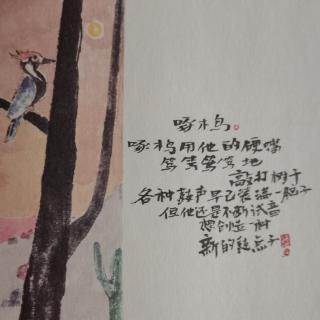 啄木鸟
啄木鸟用他的硬嘴
笃笃笃笃地
敲打树干
各种鼓声早已装满一脑子
但他还是不断试音
想创立一种
新的鼓点子